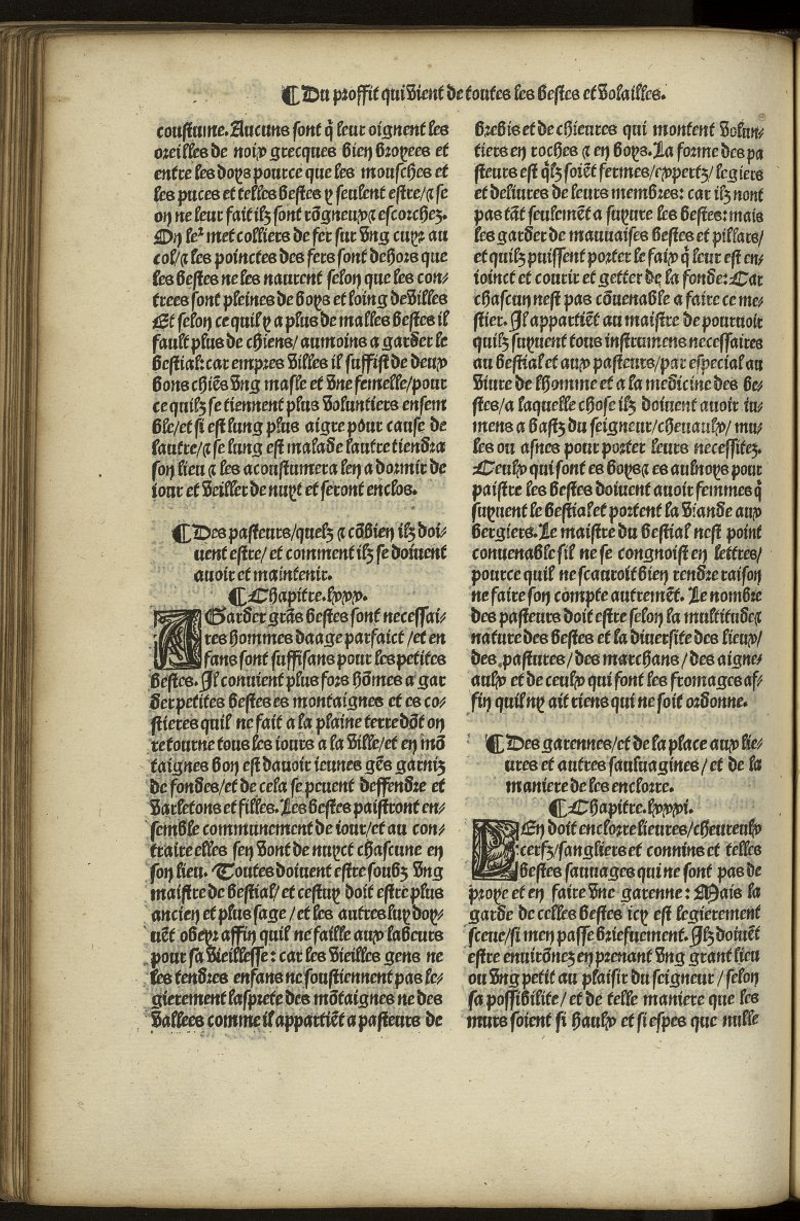 ¶ Du proffit qui vient de toutes les bestes et volailles.
coustume. Aucuns sont q̃ leur oignent les
oreilles de noix grecques bien broyees et
entre les doys pource que les mousches et
les puces et telles bestes y seulent estre/ ⁊ se
on ne leur fait ilz sont rõgneux ⁊ escorchez.
On le² met colliers de fer sur vng cuyr au
col/ ⁊ les poinctes des fers sont dehors que
les bestes ne les naurent selon que les con/
trees sont pleines de boys et loing de villes
Et selon ce quil y a plus de malles bestes il
fault plus de chiens/ aumoins a garder le
bestial: car empres villes il suffist de deux
bons chiẽs vng masle et vne femelle/ pour
ce quilz se tiennent plus voluntiers ensem
ble/ et si est lung plus aigre pour cause de
lautre/ ⁊ se lung est malade lautre tiendra
son lieu ⁊ les acoustumera len a dormir de
iour et veiller de nuyt et seront enclos.
¶ Des pasteurs/ quelz ⁊ cõbien ilz doi/
uent estre/ et comment ilz se doiuent
auoir et maintenir.
¶ Chapitre. lxxx.
A Garder grãs bestes sont necessai/
res hommes daage parfaict / et en
fans sont suffisans pour les petites
bestes. Il conuient plus fors hõmes a gar
der petites bestes es montaignes et es co/
stieres quil ne fait a la plaine terre dõt on
retourne tous les iours a la ville/ et en mõ
taignes bon est dauoir ieunes gẽs garniz
de fondes/ et de cela se peuent deffendre et
varletons et filles. Les bestes paistront en/
semble communement de iour/ et au con/
traire elles sen vont de nuyct chascune en
son lieu. Toutes doiuent estre soubz vng
maistre de bestial/ et cestuy doit estre plus
ancien et plus sage / et les autres luy doy/
uẽt obeyr affin quil ne faille aux labeurs
pour sa vieillesse: car les vieilles gens ne
les tendres enfans ne soustiennent pas le/
gierement lasprete des mõtaignes ne des
vallees comme il appartiẽt a pasteurs de
brebis et de chieures qui montent volun/
tiers en roches ⁊ en boys. La forme des pa
steurs est q̃lz soiẽt fermes/ expertz/ legiers
et deliures de leurs membres: car ilz nont
pas tãt seulemẽt a suyure les bestes: mais
les garder de mauuaises bestes et pillars/
et quilz puissent porter le faix q̃ leur est en/
ioinct et courir et getter de la fonde: Car
chascun nest pas cõuenable a faire ce me/
stier. Il appartiẽt au maistre de pouruoir
quilz suyuent tous instrumens necessaires
au bestial et aux pasteurs/ par especial au
viure de lhomme et a la medicine des be/
stes/ a laquelle chose ilz doiuent auoir iu/
mens a bastz du seigneur/ cheuaulx/ mu/
les ou asnes pour porter leurs necessitez.
Ceulx qui sont es boys ⁊ es aulnoys pour
paistre les bestes doiuent auoir femmes q̃
suyuent le bestial et portent la viande aux
bergiers. Le maistre du bestial nest point
conuenable sil ne se congnoist en lettres/
pource quil ne scauroit bien rendre raison
ne faire son compte autremẽt. Le nombre
des pasteurs doit estre selon la multitude ⁊
nature des bestes et la diuersite des lieux/
des pastures/ des marchans/ des aigne/
aulx et de ceulx qui font les fromages af/
fin quil ny ait riens qui ne soit ordonne.
¶ Des garennes/ et de la place aux lie/
ures et autres sauluagines/ et de la
maniere de les enclorre.
¶ Chapitre. lxxxi.
LEn doit enclorre lieures/ cheureulx
cerfz/ sangliers et connins et telles
bestes sauuages qui ne sont pas de
proye et en faire vne garenne: Mais la
garde de celles bestes icy est legierement
sceue/ si men passe briefuement. Ilz doiuẽt
estre enuirõnez en prenant vng grant lieu
ou vng petit au plaisir du seigneur / selon
sa possibilite/ et de telle maniere que les
murs soient si haulx et si espes que nulle